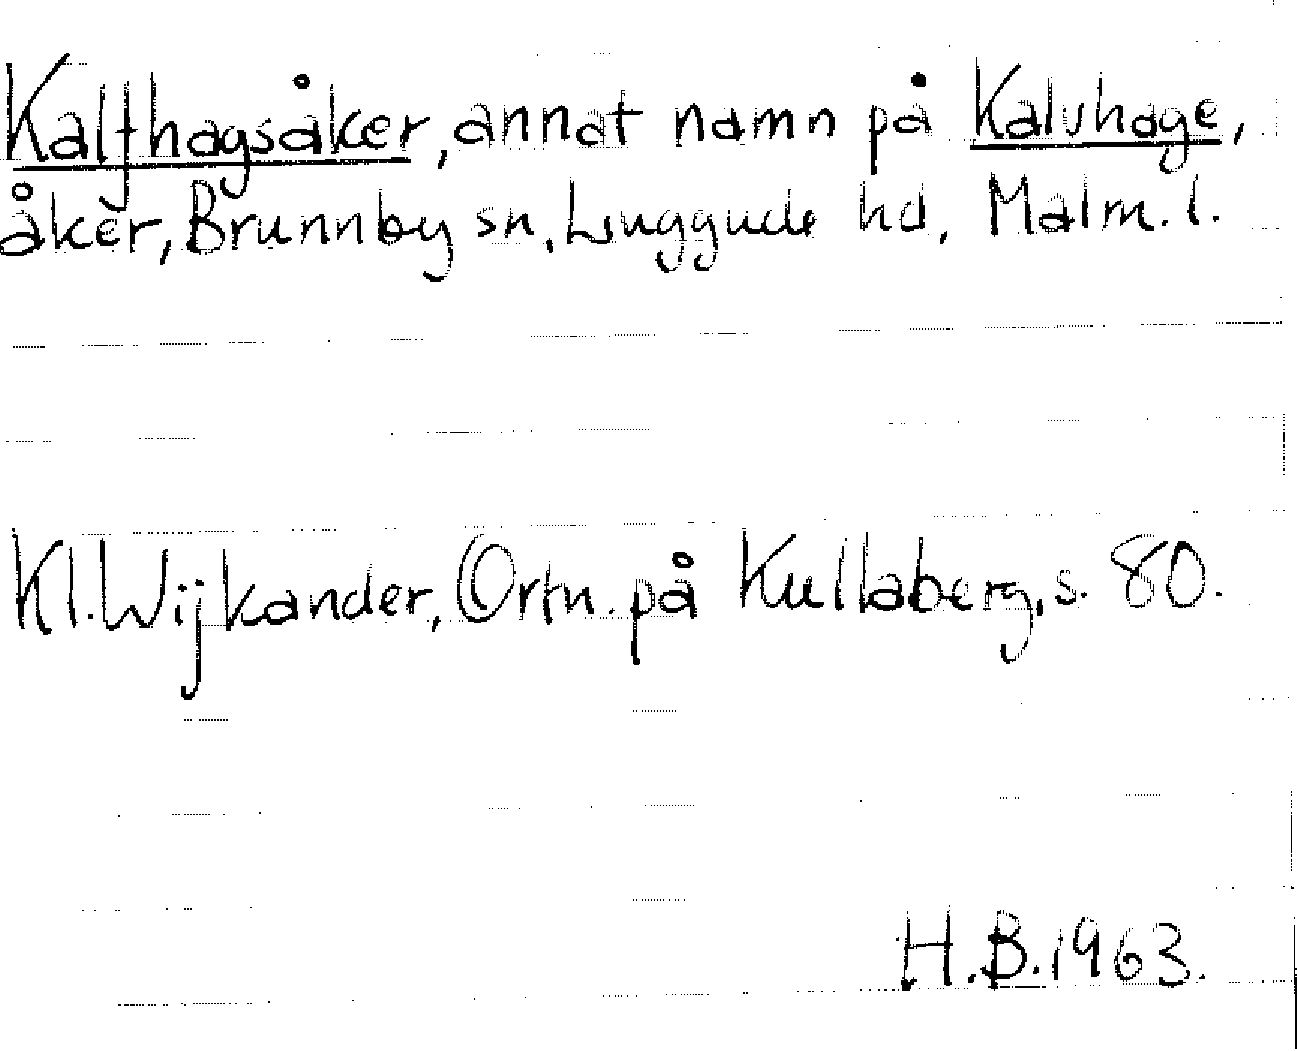 Kalfhagsåker, annat namn på Kaluhage,
åker, Brunnby sn, Luggude hd, Malm. l.
Kl. Wijkander, Ortn. på Kullaberg, s. 80.
H.B. 1963.